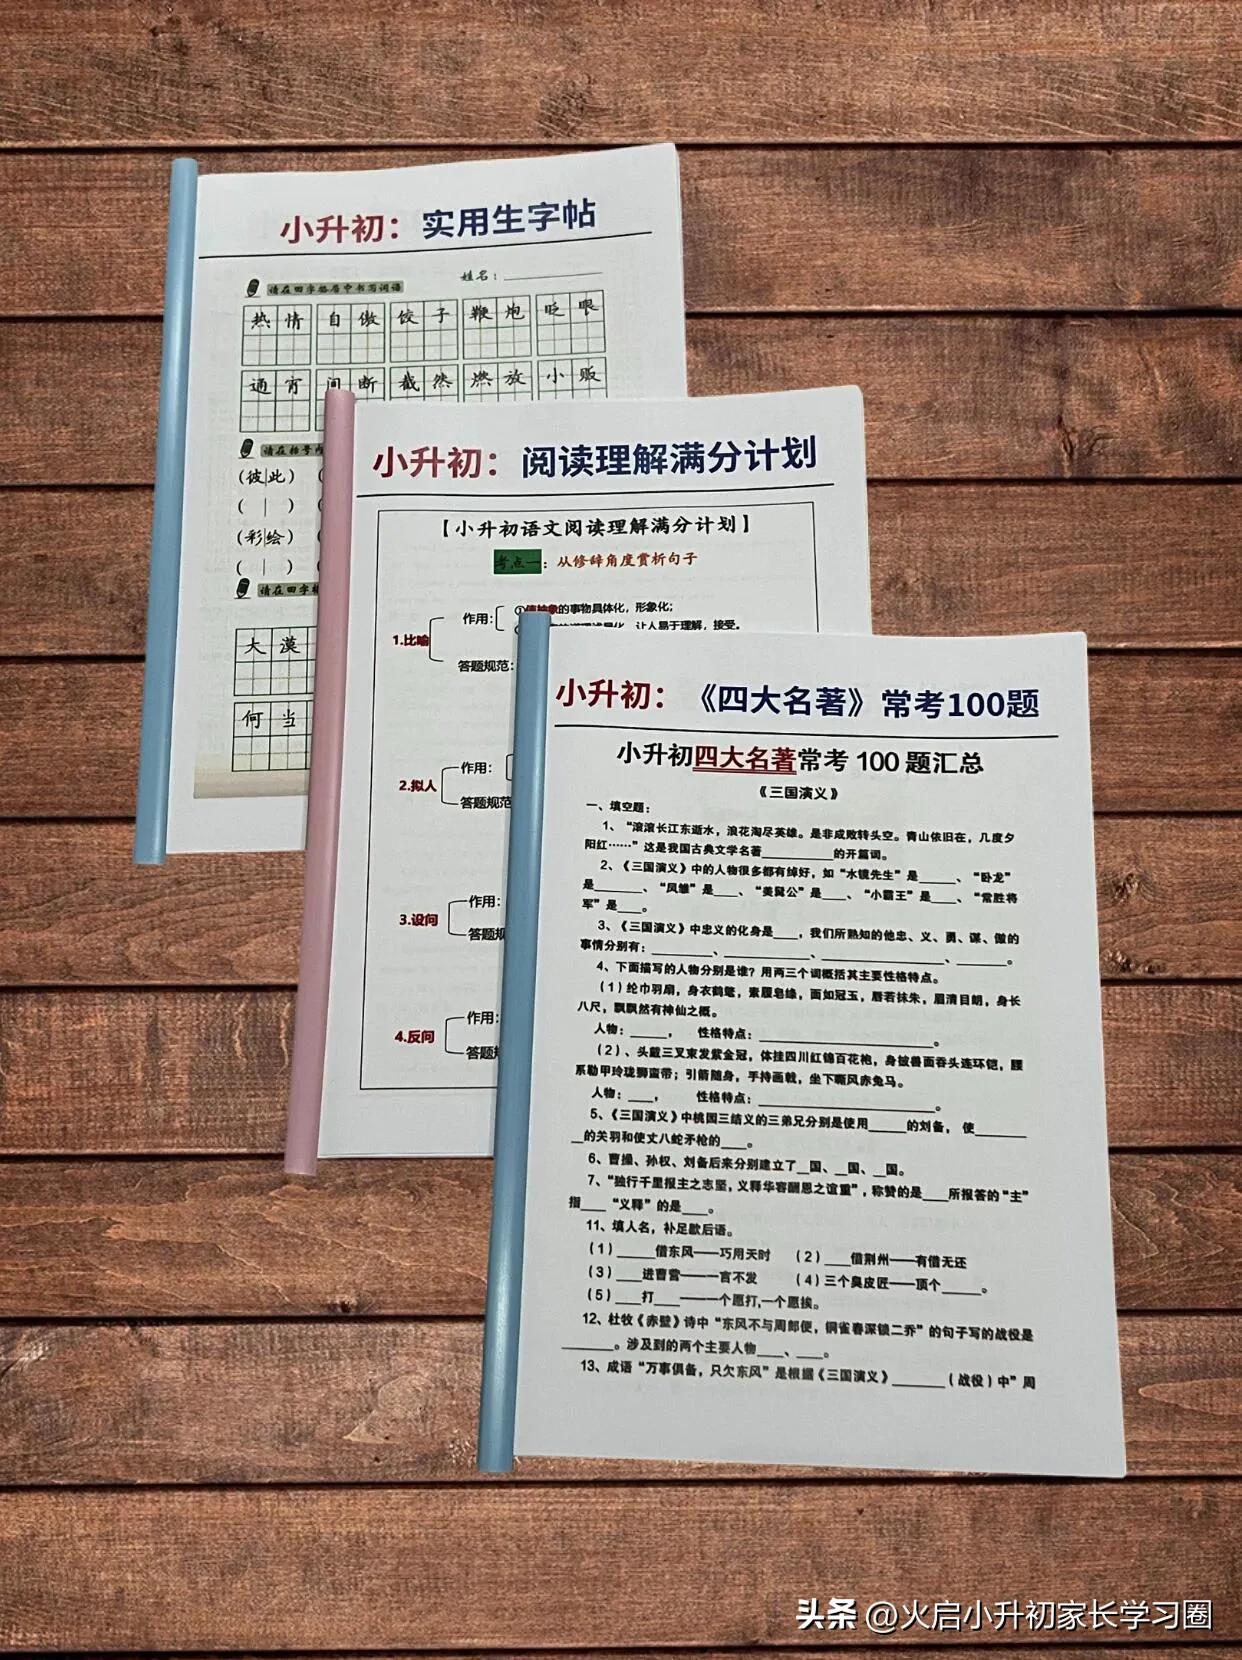 小升初：实用生字帖
姓名：
请在田字格居中书写词语
热情 自傲 饺子 鞭炮 眨眼
通宵 间断 截然 燃放 小贩
请在括号内
（彼|此）（
（ | ）（
（彩|绘）（
（ | ）（
请在田字格
大漠
何当
小升初：阅读理解满分计划
【小升初语文阅读理解满分计划】
考点一：从修辞角度赏析句子
1.比喻
作用：
①使抽象的事物具体化，形象化；
让人易于理解，接受。
答题规范：
2.拟人
作用：
答题规范
3.设问
作用：
答题规
4.反问
作用：
答题规
小升初：《四大名著》常考100题
小升初四大名著常考 100 题汇总
《三国演义》
一、填空题：
1、“滚滚长江东逝水，浪花淘尽英雄。是非成败转头空。青山依旧在，几度夕
阳红……”这是我国古典文学名著__________的开篇词。
2、《三国演义》中的人物很多都有绰好，如“水镜先生”是_____、“卧龙”
是_______、“凤雏”是___、“美髯公”是___、“小霸王”是___、“常胜将
军”是___。
3、《三国演义》中忠义的化身是___，我们所熟知的他忠、义、勇、谋、傲的
事情分别有：________、_________、_____________、_______。
4、下面描写的人物分别是谁？用两三个词概括其主要性格特点。
（1）纶巾羽扇，身衣鹤氅，素履皂绦，面如冠玉，唇若抹朱，眉清目朗，身长
八尺，飘飘然有神仙之概。
人物：_____， 性格特点：______________________。
（2）、头戴三叉束发紫金冠，体挂四川红锦百花袍，身披兽面吞头连环铠，腰
系勒甲玲珑狮蛮带；引箭随身，手持画戟，坐下嘶风赤兔马。
人物：___， 性格特点：______________________。
5、《三国演义》中桃园三结义的三弟兄分别是使用_____的刘备， 使_______
_的关羽和使丈八蛇矛枪的___。
6、曹操、孙权、刘备后来分别建立了__国、__国、__国。
7、“独行千里报主之志坚，义释华容酬恩之谊重”，称赞的是___所报答的“主”
指___ “义释”的是___。
11、填人名，补足歇后语。
（1）_____借东风——巧用天时 （2）___借荆州——有借无还
（3）___进曹营——一言不发 （4）三个臭皮匠——顶个_____。
（5）___打___——一个愿打，一个愿挨。
12、杜牧《赤壁》诗中“东风不与周郎便，铜雀春深锁二乔”的句子写的战役是
_______。涉及到的两个主要人物____、____。
13、成语“万事俱备，只欠东风”是根据《三国演义》_______（战役）中”周
头条 @火启小升初家长学习圈